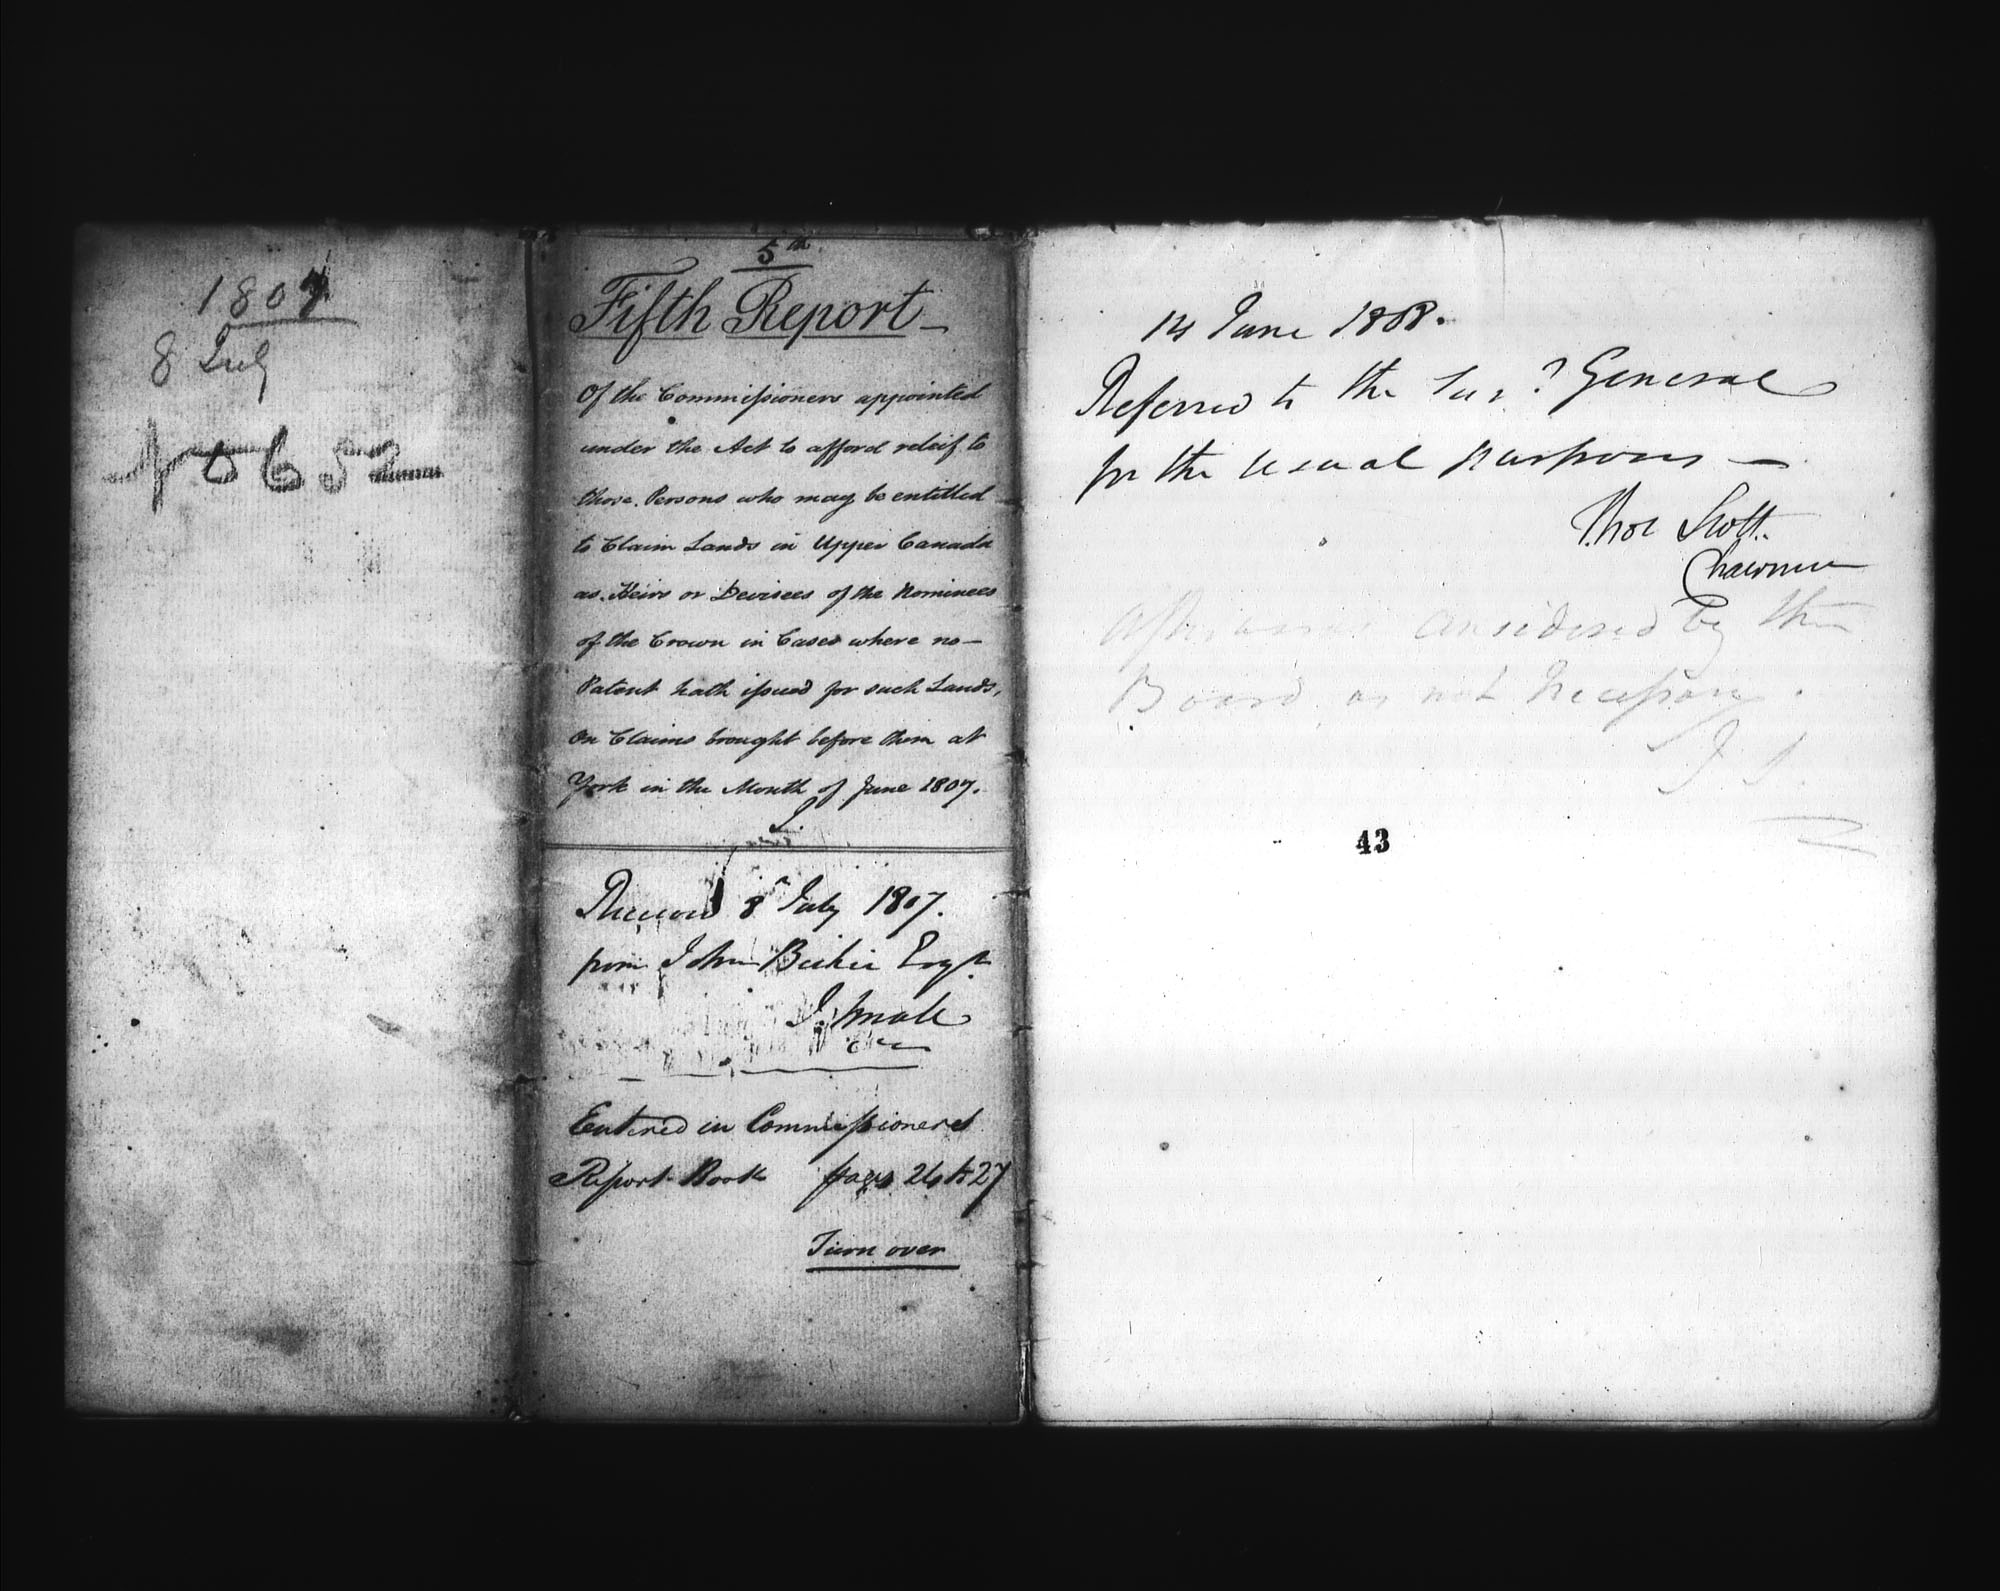 1807
8 July
No 652
5th
Fifth Report
Of the Commissioners appointed
under the Act to afford releif to
those Persons who may be entitled
to Claim Lands in Upper Canada
as Heirs or Devisees of the Nominees
of the Crown in Cases where no
Patent hath issued for such Lands,
On Claims brought before them at
York in the Month of June 1807.
Received 8th July 1807.
from John Beikie Esqr
J. Small
Entered in Commissioners
Report Book pages 24 to 27
Turn over
14 June 1808.
Referred to the Surr General
for the usual purposes —
Thos Scott.
Chairman
Afterwards considered by the
Board as not necessary.
T S.
43